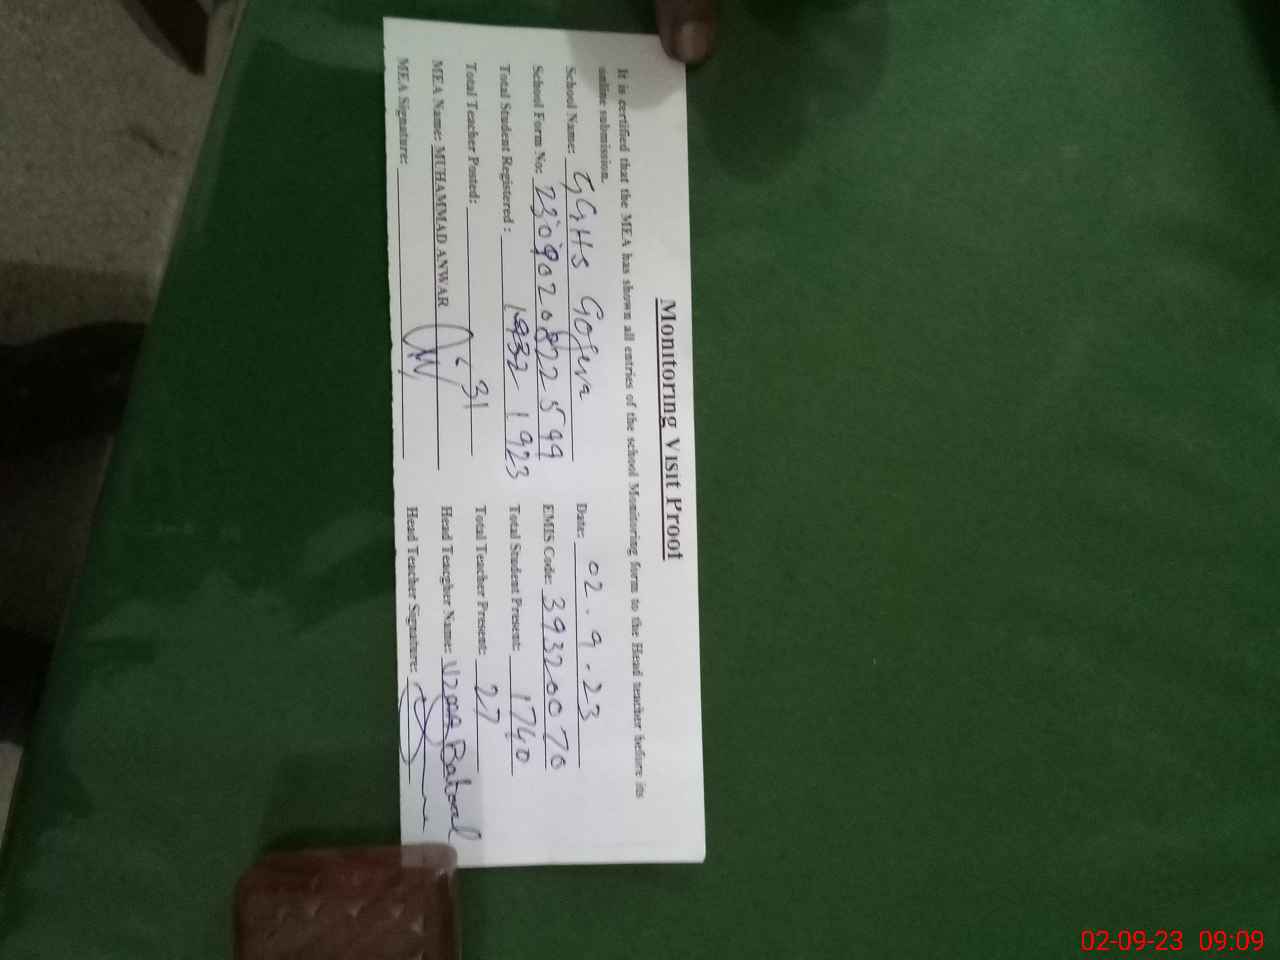 Monitoring Visit Proof
It is certified that the MEA has shown all entries of the school Monitoring form to the Head teacher before its
online submission.
School Name: GGHS Gojra Date: 02.9.23
School Form No: 2309020822599 EMIS Code: 39320070
Total Student Registered : 1932 1923 Total Student Present: 1740
Total Teacher Posted: 31 Total Teacher Present: 27
MEA Name: MUHAMMAD ANWAR Head Teacgher Name: Uzma Batool
MEA Signature: Head Teacher Signature:
02-09-23 09:09